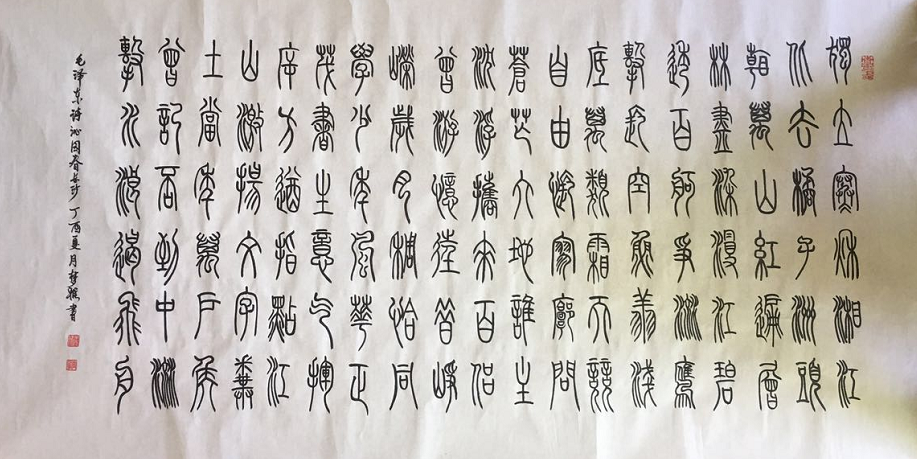 獨立寒秋湘江
北去橘子洲頭
看萬山紅遍層
林盡染漫江碧
透百舸爭流鷹
擊長空魚翔淺
底萬類霜天競
自由悵寥廓問
蒼茫大地誰主
沈浮攜來百侶
曾游憶往昔崢
嶸歲月稠恰同
學少年風華正
茂書生意气揮
斥方遒指點江
山激揚文字糞
土當年萬戶侯
曾記否到中流
擊水浪遏飛舟
毛泽东诗沁园春长沙 丁酉夏月書